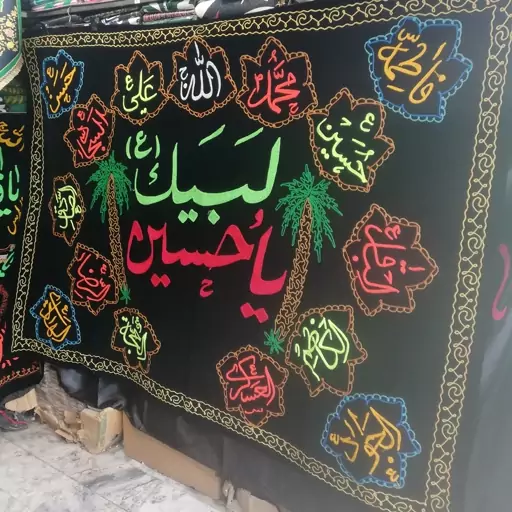 الله
محمد
علي
فاطمة
حسن
حسين
السجاد
الباقر
الصادق
الكاظم
الرضا
الجواد
العسكري
لبيك (ع)
يا حسين